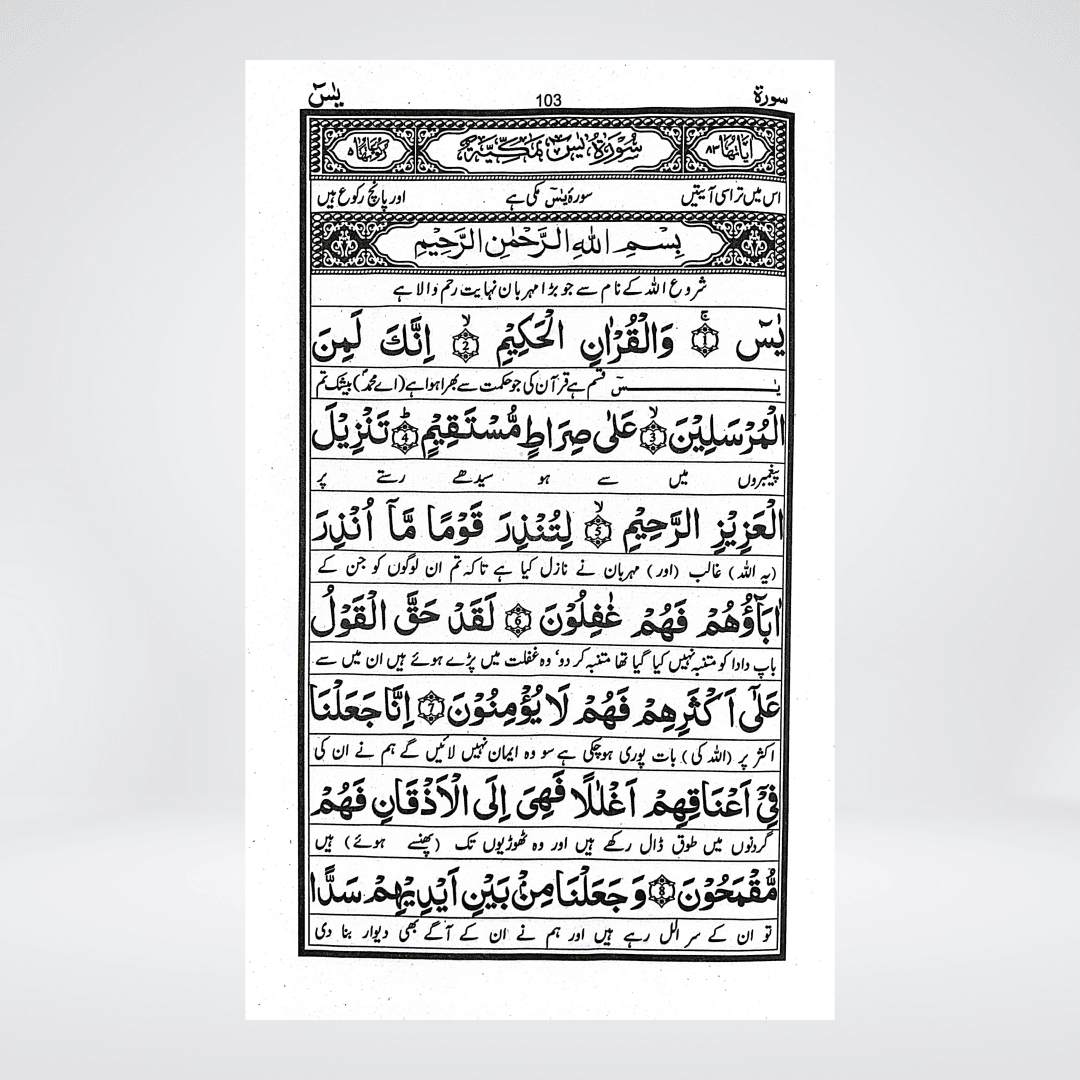 سورة 103 یٰسٓ
اٰیَاتُهَا ۸۳ سُوْرَةُ یٰسٓ مَكِّیَّةٌ رُكُوْعَاتُهَا ۵
اس میں تراسی آیتیں سورۂ یٰسٓ مکی ہے اور پانچ رکوع ہیں
بِسْمِ اللهِ الرَّحْمٰنِ الرَّحِیْمِ
شروع اللہ کے نام سے جو بڑا مہربان نہایت رحم والا ہے
یٰسٓ ۚ 1 وَالْقُرْاٰنِ الْحَكِیْمِ ۙ 2 اِنَّكَ لَمِنَ
یٰسٓ قسم ہے قرآن کی جو حکمت سے بھرا ہوا ہے (اے محمدؐ) بیشک تم
الْمُرْسَلِیْنَ ۙ 3 عَلٰی صِرَاطٍ مُّسْتَقِیْمٍ ؕ 4 تَنْزِیْلَ
پیغمبروں میں سے ہو سیدھے رستے پر
الْعَزِیْزِ الرَّحِیْمِ ۙ 5 لِتُنْذِرَ قَوْمًا مَّاۤ اُنْذِرَ
(یہ اللہ) غالب (اور) مہربان نے نازل کیا ہے تاکہ تم ان لوگوں کو جن کے
اٰبَآؤُهُمْ فَهُمْ غٰفِلُوْنَ 6 لَقَدْ حَقَّ الْقَوْلُ
باپ دادا کو متنبہ نہیں کیا گیا تھا متنبہ کر دو، وہ غفلت میں پڑے ہوئے ہیں ان میں سے
عَلٰۤی اَكْثَرِهِمْ فَهُمْ لَا یُؤْمِنُوْنَ 7 اِنَّا جَعَلْنَا
اکثر پر (اللہ کی) بات پوری ہو چکی ہے سو وہ ایمان نہیں لائیں گے ہم نے ان کی
فِیْۤ اَعْنَاقِهِمْ اَغْلٰلًا فَهِیَ اِلَی الْاَذْقَانِ فَهُمْ
گردنوں میں طوق ڈال رکھے ہیں اور وہ ٹھوڑیوں تک (پھنسے ہوئے) ہیں
مُّقْمَحُوْنَ 8 وَجَعَلْنَا مِنْۢ بَیْنِ اَیْدِیْهِمْ سَدًّا
تو ان کے سر الل رہے ہیں اور ہم نے ان کے آگے بھی دیوار بنا دی